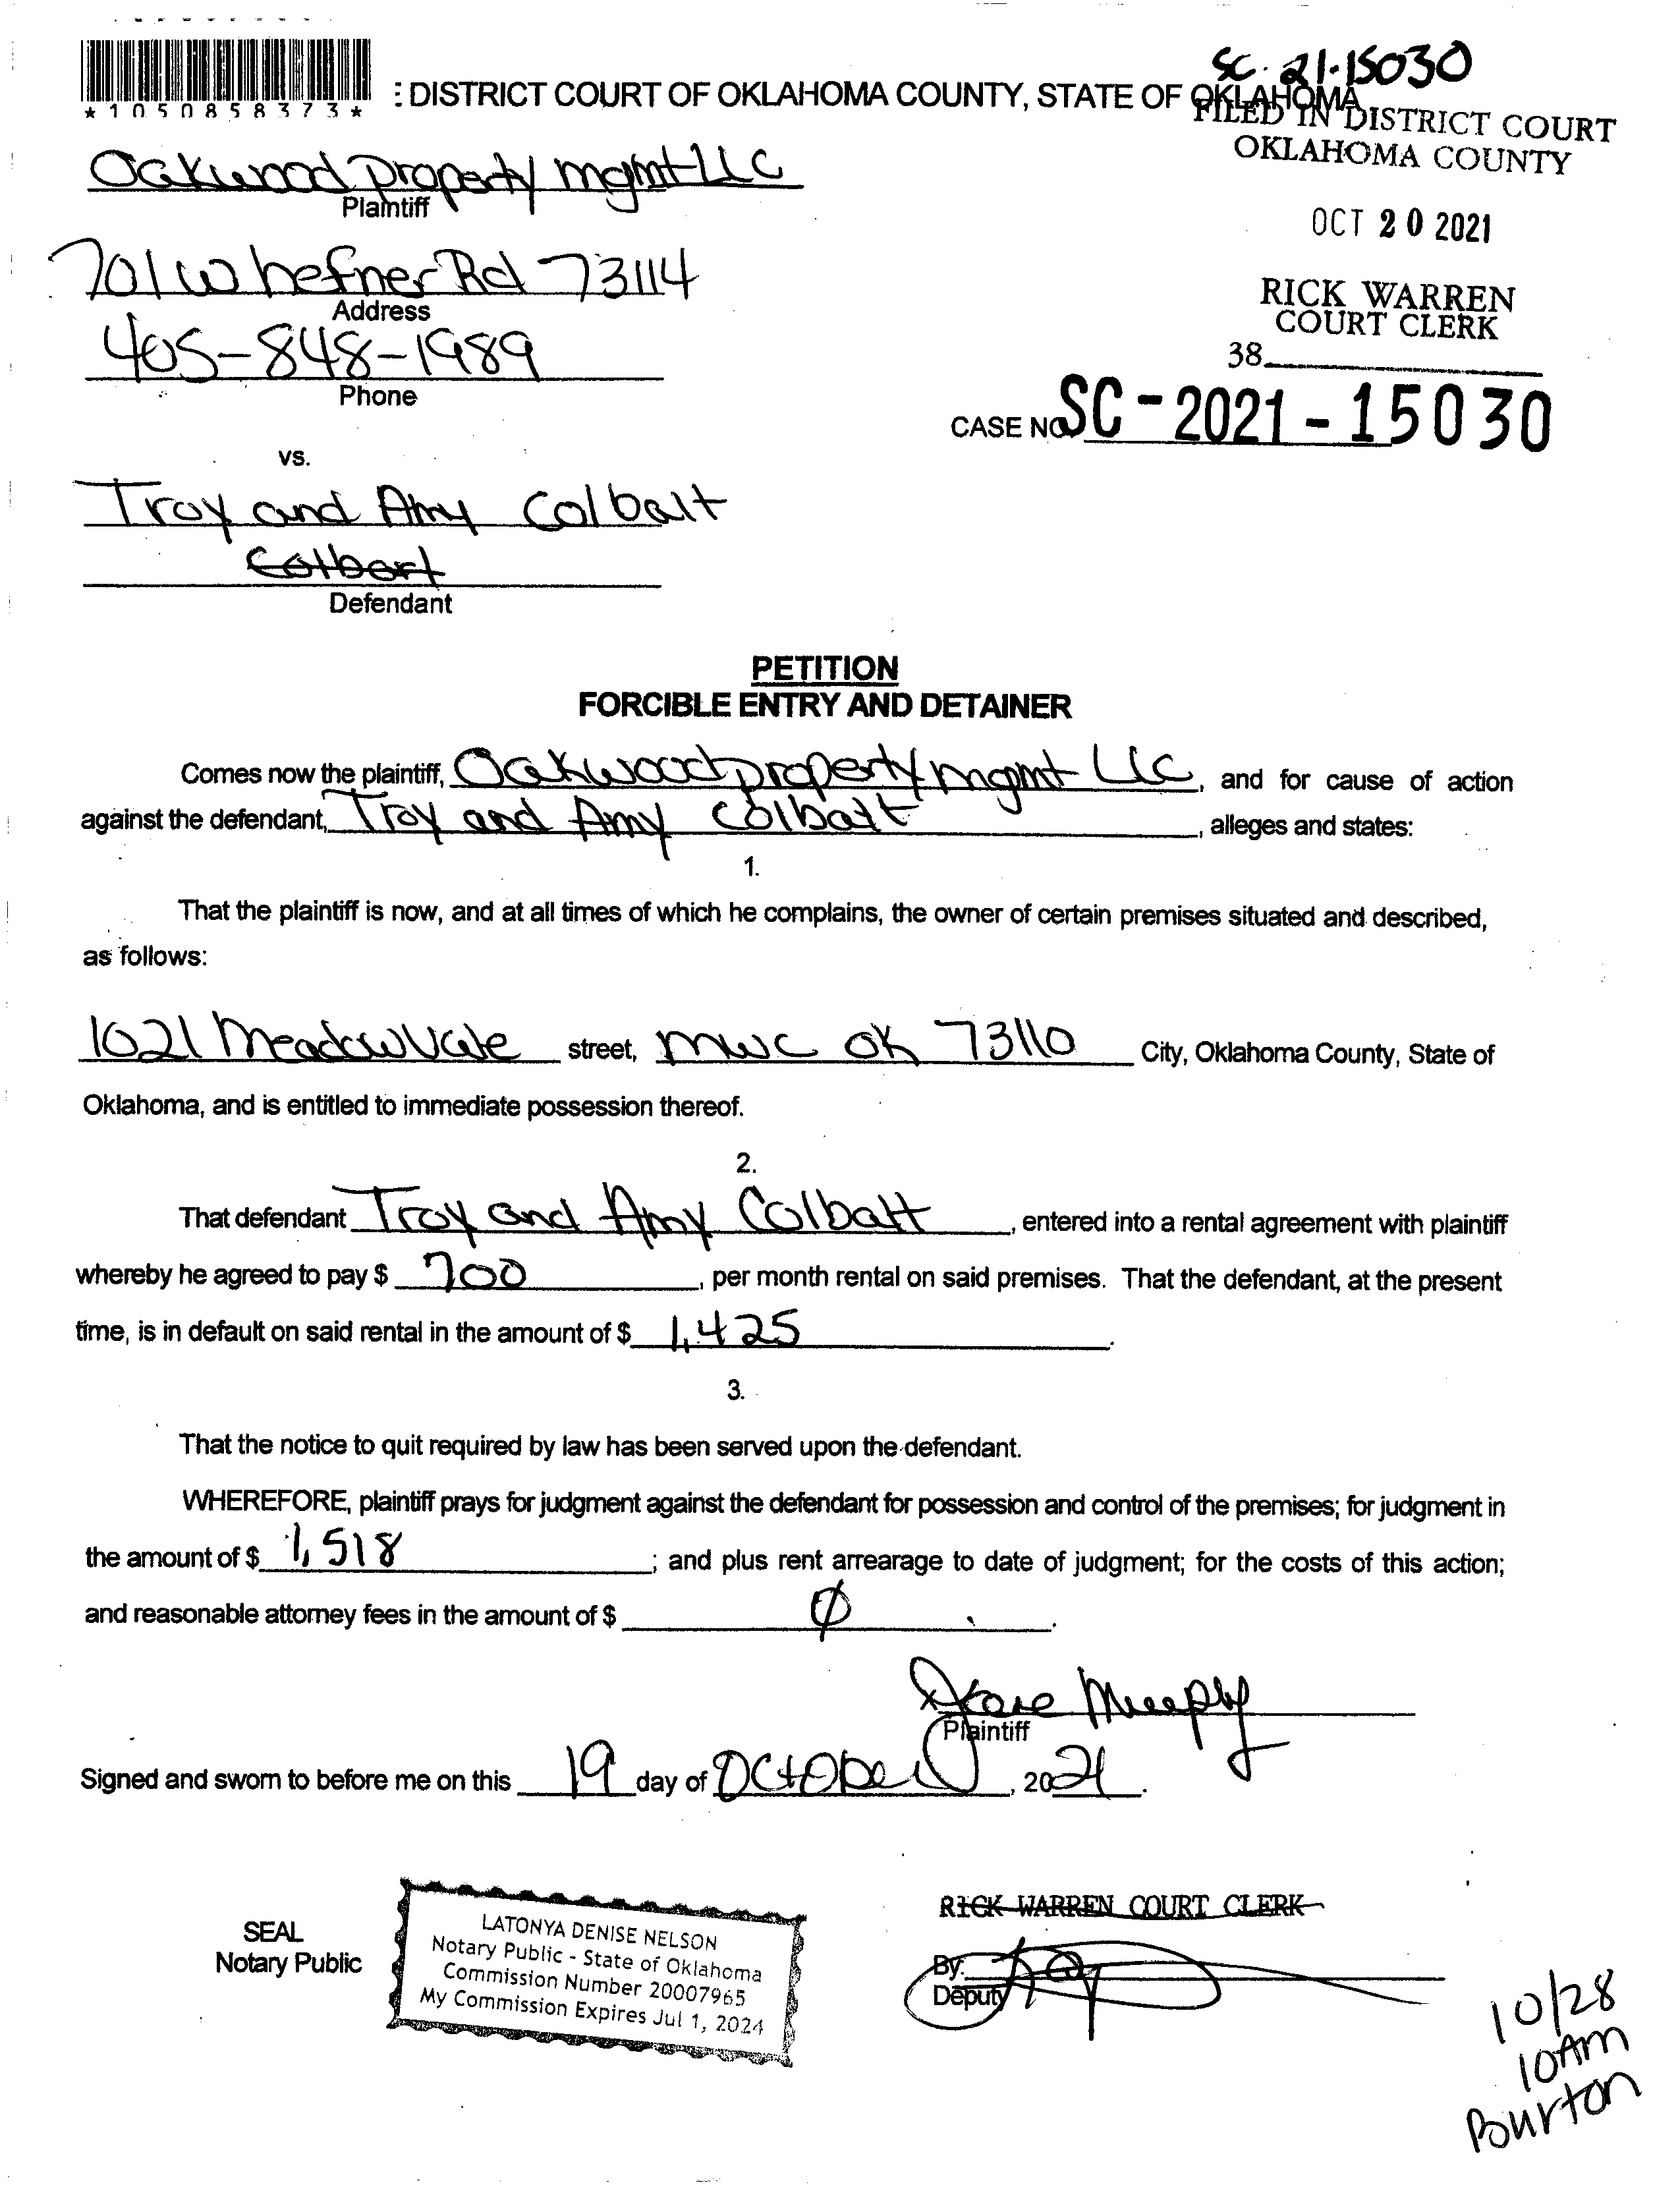 SC-21-15030
*1050858373*
: DISTRICT COURT OF OKLAHOMA COUNTY, STATE OF OKLAHOMA
FILED IN DISTRICT COURT
OKLAHOMA COUNTY
Oakwood property mgmt LLC
Plaintiff
OCT 20 2021
701 W hefner Rd 73114
Address
RICK WARREN
COURT CLERK
405-848-1989
Phone
38
CASE NO. SC-2021-15030
vs.
Troy and Amy Colbatt
Colbert
Defendant
PETITION
FORCIBLE ENTRY AND DETAINER
Comes now the plaintiff, Oakwood property mgmt LLC, and for cause of action
against the defendant, Troy and Amy Colbatt, alleges and states:
1.
That the plaintiff is now, and at all times of which he complains, the owner of certain premises situated and described,
as follows:
1021 Meadowvale street, mwc OK 73110 City, Oklahoma County, State of
Oklahoma, and is entitled to immediate possession thereof.
2.
That defendant Troy and Amy Colbatt, entered into a rental agreement with plaintiff
whereby he agreed to pay $ 700, per month rental on said premises. That the defendant, at the present
time, is in default on said rental in the amount of $ 1,425.
3.
That the notice to quit required by law has been served upon the defendant.
WHEREFORE, plaintiff prays for judgment against the defendant for possession and control of the premises; for judgment in
the amount of $ 1,518; and plus rent arrearage to date of judgment; for the costs of this action;
and reasonable attorney fees in the amount of $ Ø.
Murphy
Plaintiff
Signed and sworn to before me on this 19 day of October, 2021.
SEAL
Notary Public
LATONYA DENISE NELSON
Notary Public - State of Oklahoma
Commission Number 20007965
My Commission Expires Jul 1, 2024
RICK WARREN COURT CLERK
By:
Deputy
10/28
10Am
Burton